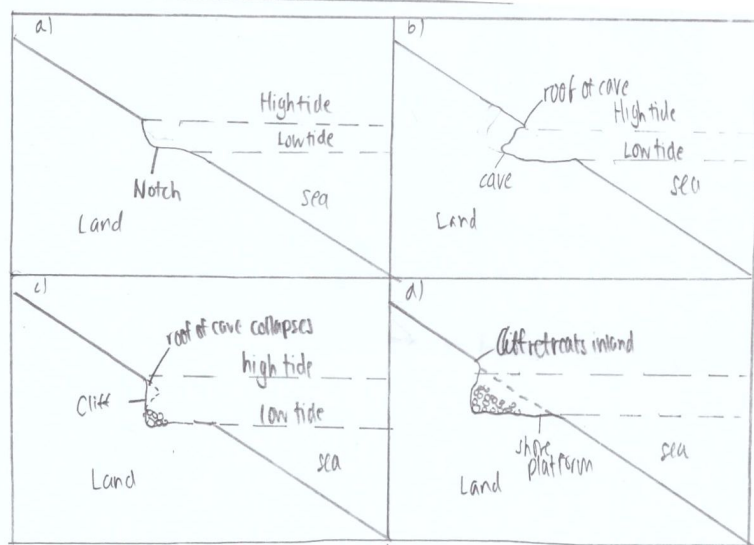 a)
High tide
Low tide
Notch
sea
Land
b)
roof of cave
High tide
Low tide
cave
sea
Land
c)
roof of cave collapses
high tide
Cliff
low tide
sea
Land
d)
Cliff retreats inland
shore
platform
sea
Land